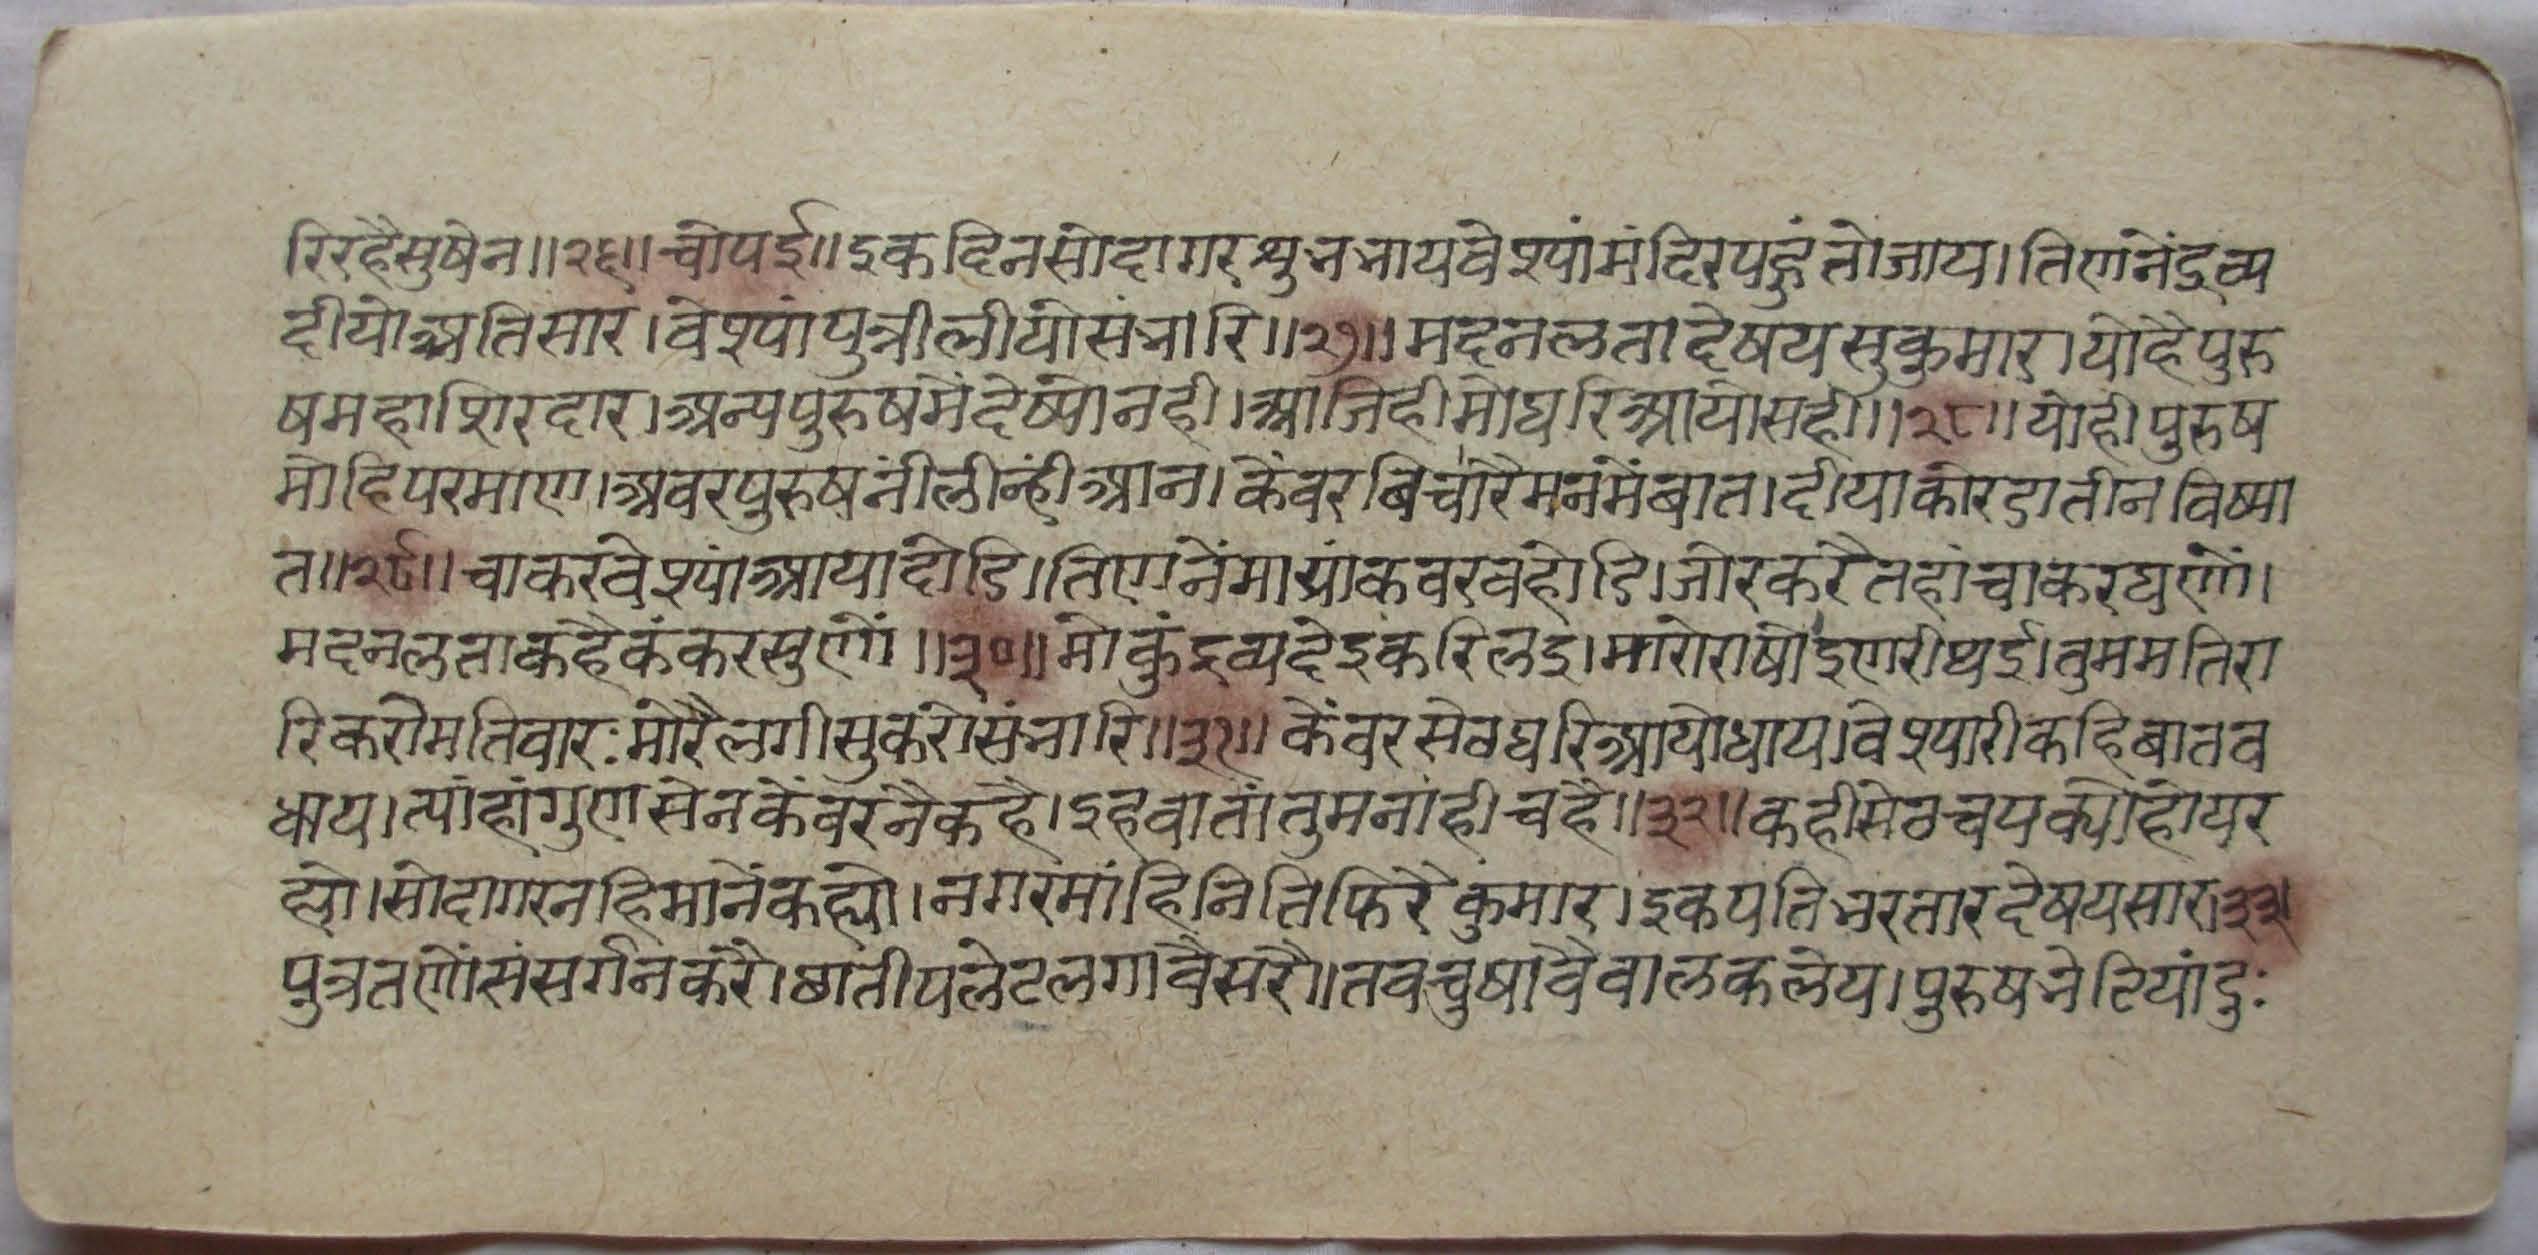 रिरहैसुषेन॥२६॥चोपई॥इकदिनसोदागरशुभभायवेश्यांमंदिरपहुंतोजाय।तिणनेंद्रव्य
दीयोअतिसार।वेश्यांपुत्रीलीयोसंभारि॥२७॥मदनलतादेषयसुकुमार।योहैपुरु
षमहाशिरदार।अन्यपुरुषमेंदेष्योनही।आजिहीमोघरिआयोसही॥२८॥योहीपुरुष
मोहिपरमाण।अवरपुरुषनींलीन्हींआन।केंवरबिचारैमनमेंबात।दीयाकोरडातीनविष्या
त॥२९॥चाकरवेश्यांआयादोडि।तिणनेंमार्‍यांकवरवहोडि।जोरकरैतहांचाकरघणों।
मदनलताकहैकंकरसुणों॥३०॥मोकुंद्रव्यदेइकरिलइ।मारोराषोइणरीथई।तुममतिरा
रिकरोमतिवार:मोरैलगीसुकरोसंभारि॥३१॥केंवरसेठघरिआयोधाय।वेश्यारीकहिबातव
धाय।त्यांहांगुणसेनकेंवरनैकहै।इहवातांतुमनांहीचहै॥३२॥कहीसेठचयक्योहोयर
ह्यो।सोदागरनहिमानेंकह्यो।नगरमांहिनितिफिरैकुमार।इकपतिभरतारदेषयसार।३३।
पुत्रतणोंसंसर्गनकरै।छातीपलेटलगावैसरै॥तवचुषावैवालकलेय।पुरुषभेटियांदु: